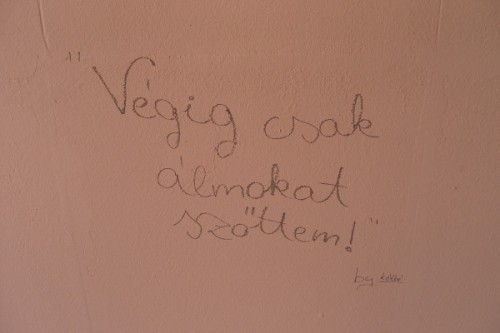 "Végig csak
álmokat
szőttem!"
by